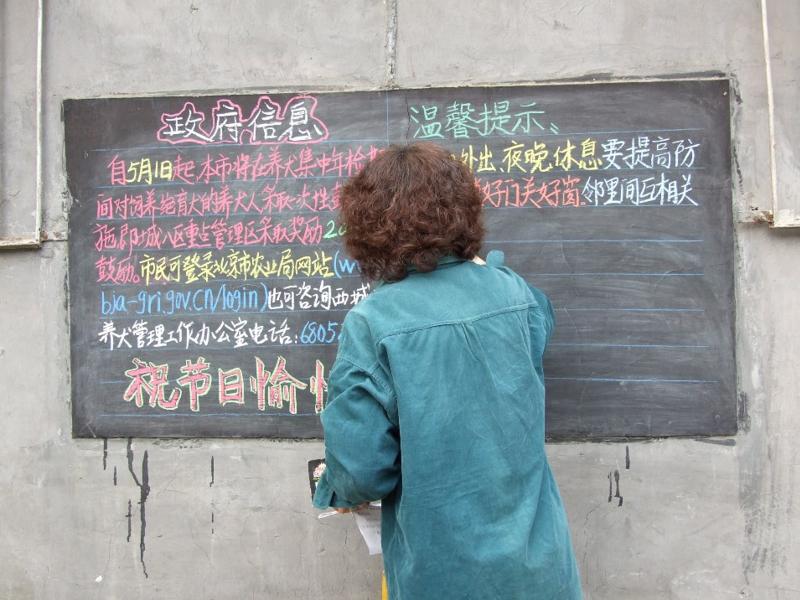 政府信息
自5月1日起,本市将在养犬集中年检
间对饲养绝育犬的养犬人采取一次性
施,郡城八区重点管理区采取奖励
鼓励。市民可登录北京市农业局网站(w
bja-gri.gov.cn/login)也可咨询西城
养犬管理工作办公室电话:6805
祝节日愉
温馨提示、
外出、夜晚、休息要提高防
好门关好窗,邻里间互相关